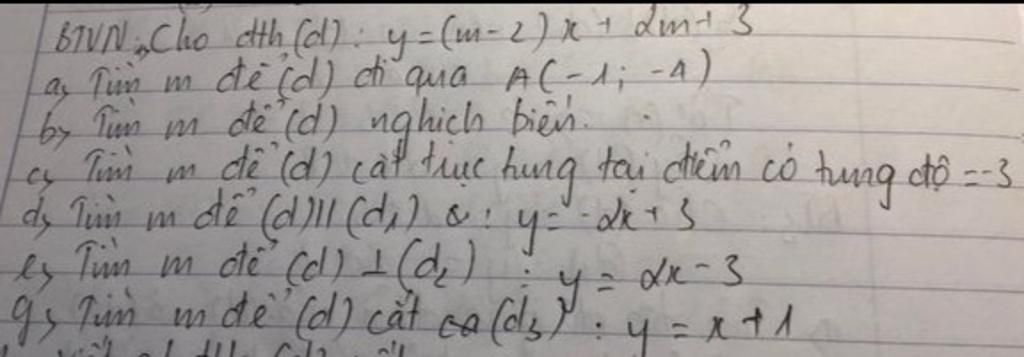 BTVN: Cho đth (d): y=(m-2)x+2m+3
a, Tìm m để (d) đi qua A(-1; -1)
b, Tìm m để (d) nghịch biến.
c, Tìm m để (d) cắt trục tung tại điểm có tung độ =-3
d, Tìm m để (d)//(d₁) : y=-2x+3
e, Tìm m để (d)⊥(d₂) : y=2x-3
g, Tìm m để (d) cắt (d₃) : y=x+1